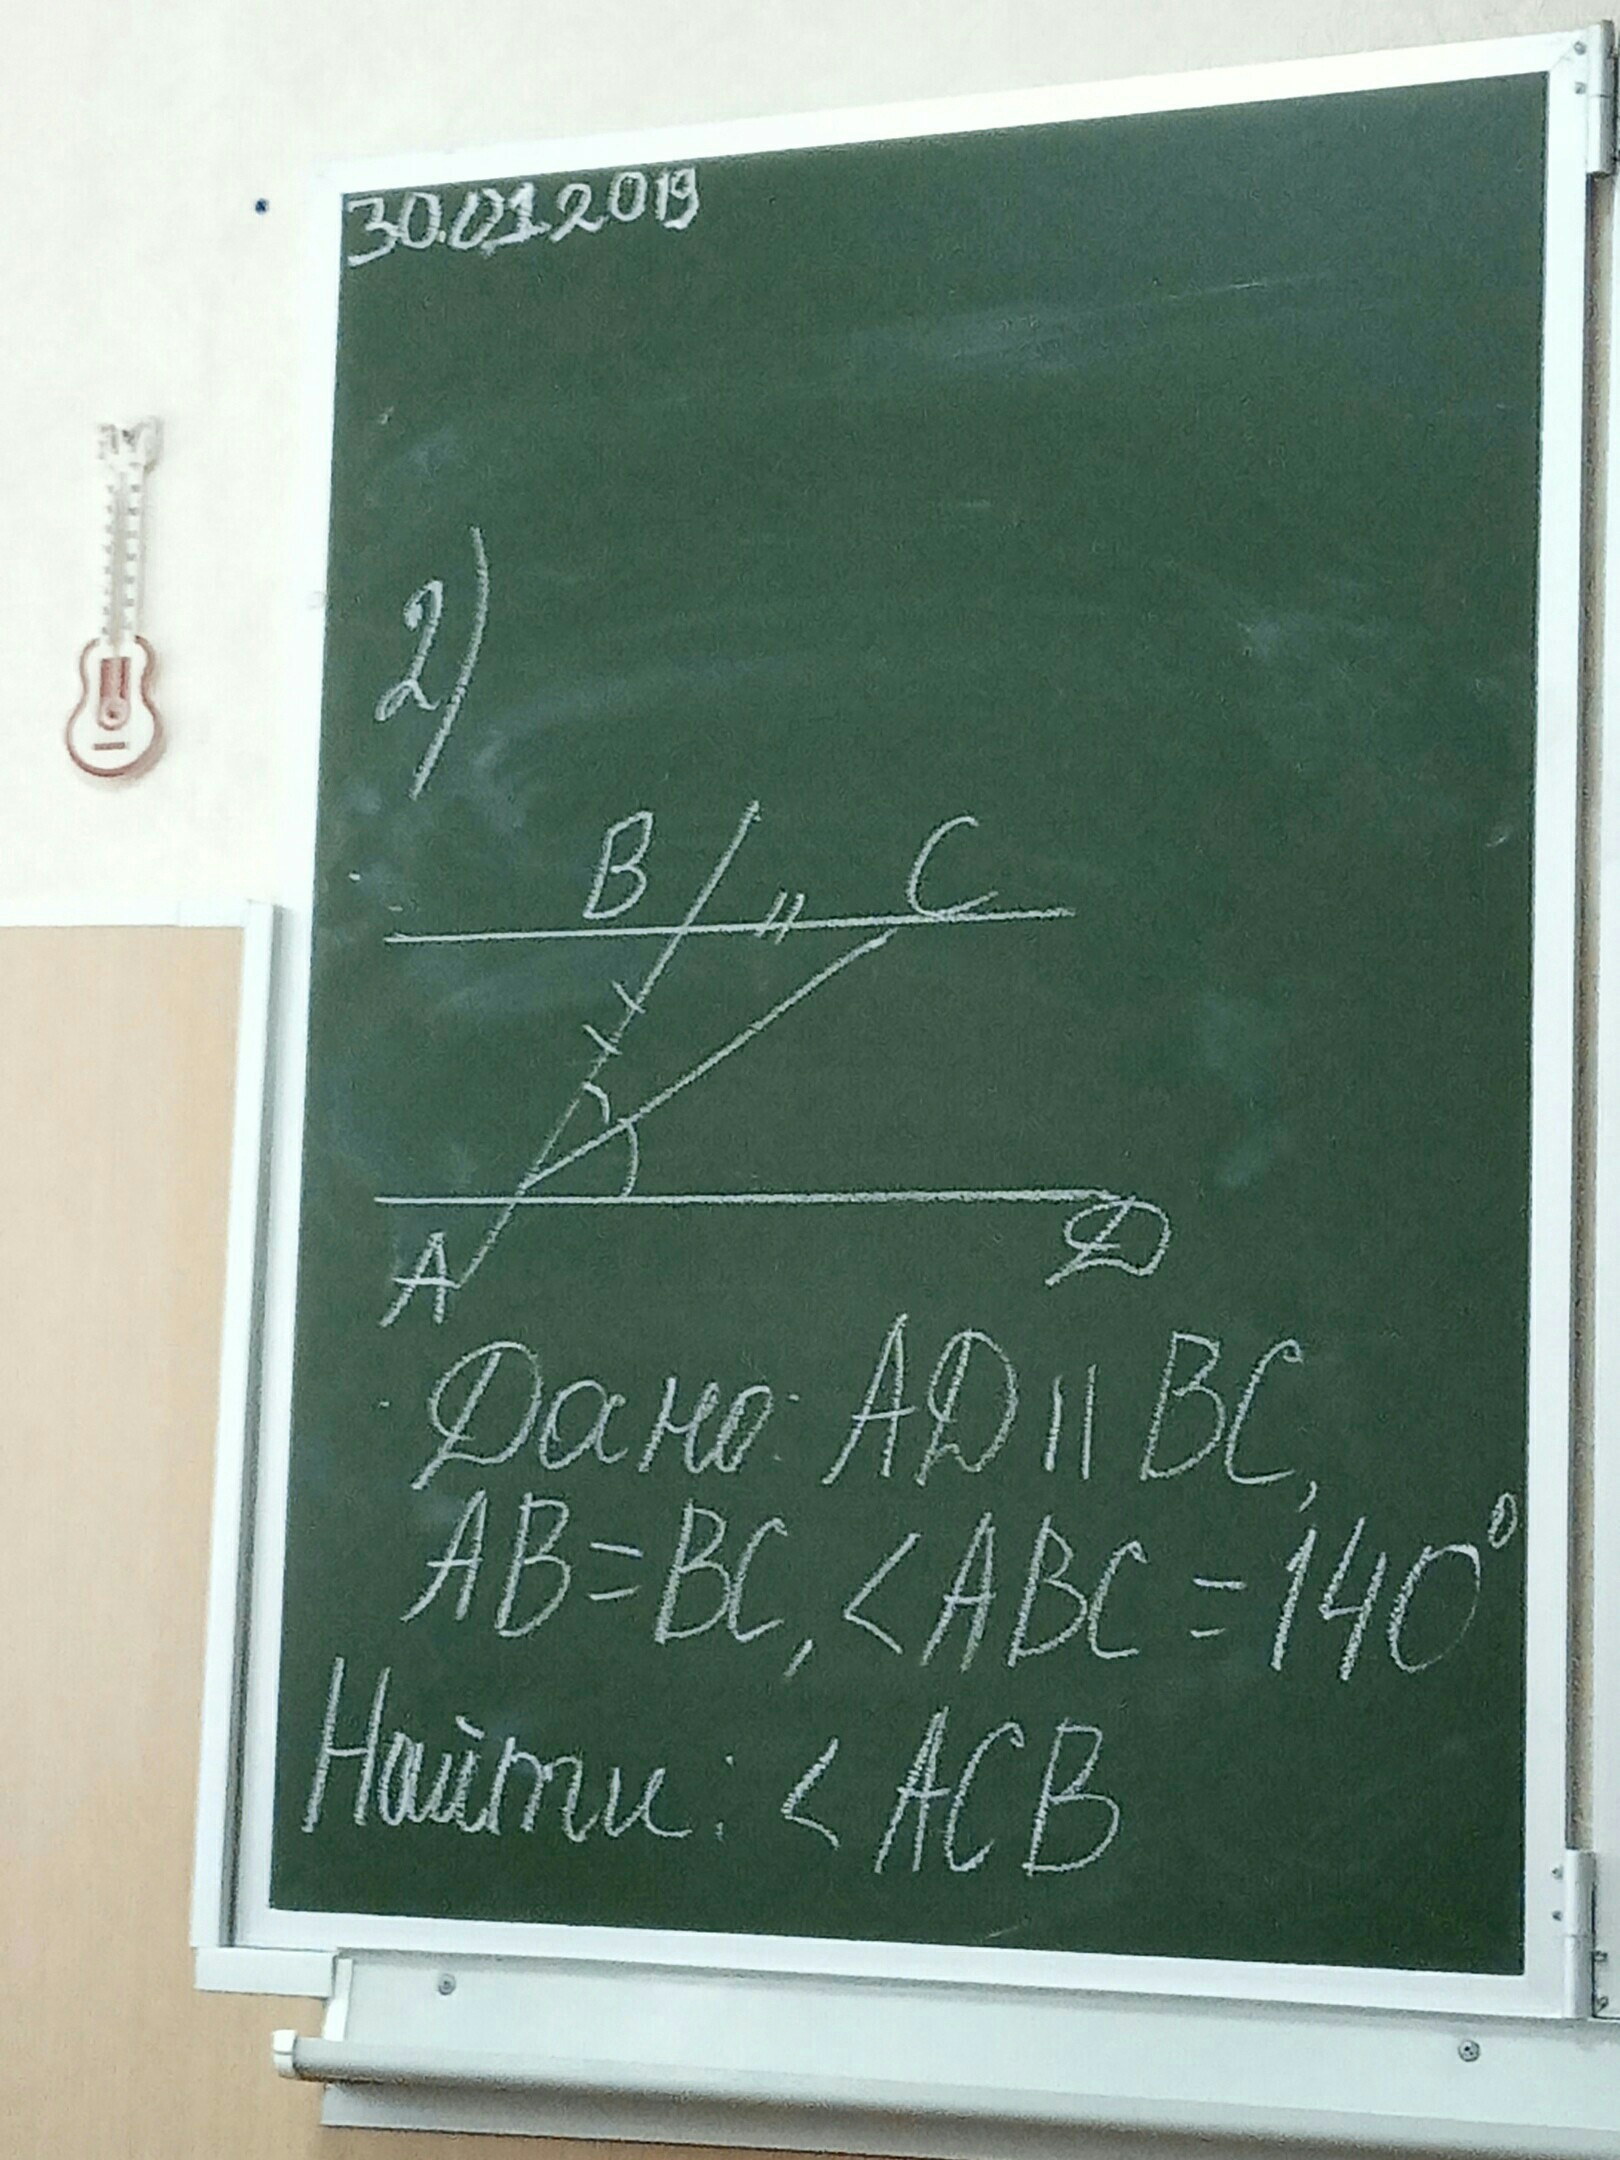 30.01.2019
2)
B C
A D
Дано: AD || BC,
AB=BC, <ABC=140°
Найти: <ACB